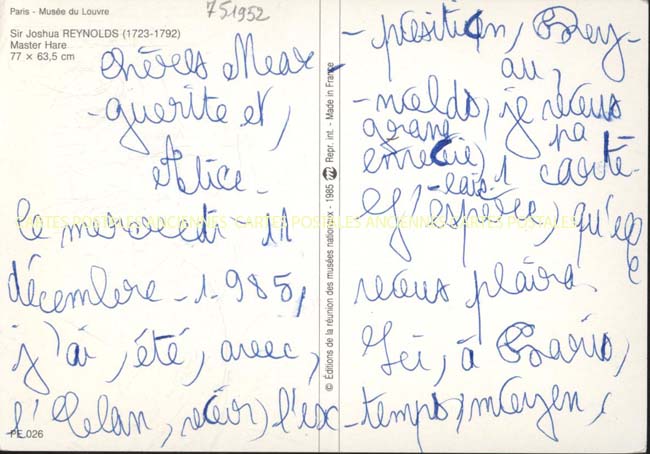 Paris - Musée du Louvre
751952
Sir Joshua REYNOLDS (1723-1792)
Master Hare
77 x 63,5 cm
chères Mar-
-guerite et,
Alice-
le mercredi 11
décembre-1-985,
j'ai, été, avec,
l'Elan, voir, l'ex-
PE.026
© Éditions de la réunion des musées nationaux - 1985 Repr. int. - Made in France
-position, Rey-
-nolds, je vous
au,
ayant
envoyé,
pa
-lais-
1 carte
J'espère, qu'elle
vous plaira
Ici, à Paris,
temps, moyen,
CARTES POSTALES ANCIENNES CARTES POSTALES ANCIENNES CARTES POSTALES